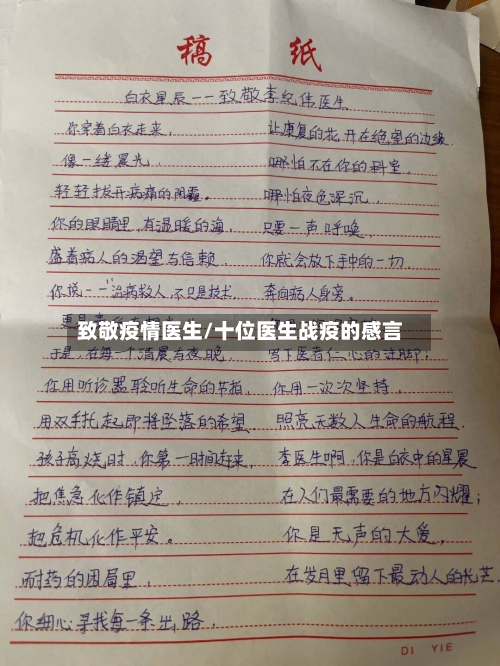 稿 纸
白衣星辰---致敬李纪伟医生
你穿着白衣走来，
像一缕晨光，
轻轻拨开病痛的阴霾。
你的眼睛里，有温暖的海，
盛着病人的渴望与信赖，
你说--"治病救人，不只是技术，
于是，在每一个清晨与夜晚，
你用听诊器聆听生命的节拍，
用双手托起即将坠落的希望
孩子高烧时，你第一时间赶来，
把焦急化作镇定，
把危机化作平安。
耐药的困局里，
你细心寻找每一条出路，
让康复的花开在绝望的边缘
哪怕不在你的科室，
哪怕夜色深沉，
只要一声呼唤，
你就会放下手中的一切，
奔向病人身旁。
写下医者仁心的注脚；
你用一次次坚持，
照亮无数人生命的航程.
李医生啊，你是白衣中的星晨
在人们最需要的地方闪耀；
你是无声的大爱，
在岁月里留下最动人的光芒.
致敬疫情医生/十位医生战疫的感言
DI YIE